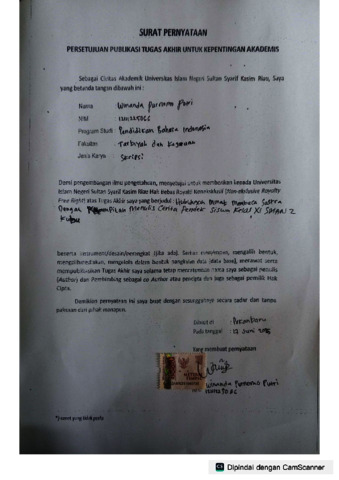 SURAT PERNYATAAN
PERSETUJUAN PUBLIKASI TUGAS AKHIR UNTUK KEPENTINGAN AKADEMIS
Sebagai Civitas Akademik Universitas Islam Negeri Sultan Syarif Kasim Riau, Saya
yang betanda tangan dibawah ini :
Nama : Winanda Purnomo Putri
NIM :
Program Studi : Pendidikan Bahasa Indonesia
Fakultas : Tarbiyah dan Keguruan
Jenis Karya : Skripsi
Demi pengembangan ilmu pengetahuan, menyetujui untuk memberikan kepada Universitas
Islam Negeri Sultan Syarif Kasim Riau Hak Bebas Royalti Noneksklusif (Non-exclusive Royalty
Free Right) atas Tugas Akhir saya yang berjudul : Hubungan Minat Membaca Sastra
Dengan Menulis Cerita Pendek Siswa Kelas XI SMAN 2
beserta instrumen/desain/perangkat (jika ada). Berhak menyimpan, mengalih bentuk,
mengalihmediakan, mengelola dalam bentuk pangkalan data (data base), merawat serta
mempublikasikan Tugas Akhir saya selama tetap mencantumkan nama saya sebagai penulis
(Author) dan Pembimbing sebagai co Author atau pencipta dan juga sebagai pemilik Hak
Cipta.
Demikian pernyataan ini saya buat dengan sesungguhnya secara sadar dan tanpa
paksaan dari pihak manapun.
Dibuat di : Pekanbaru
Pada tanggal : Juni
Yang membuat pernyataan
Winanda Purnomo Putri
CS Dipindai dengan CamScanner